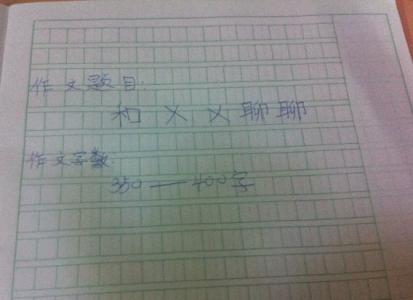 作文题目:
和 X X 聊聊
作文字数:
350——400字